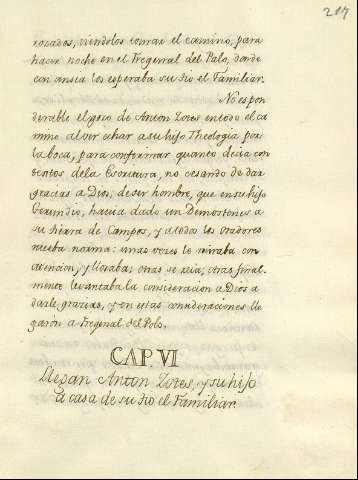 217
rocados, viendolos tomar el camino, para
hacer noche en el Fregenal del Palo, donde
con ansia los esperaba su tio el Familiar.
No es pon
derable el gozo de Anton Zotes en todo el ca
mino al oir echar a su hijo Theologia por
la boca, para confirmar quanto decia con
textos de la Escritura, no cesando de dar
gracias a Dios, de ser hombre, que en su hijo
Gerundio, havia dado un Demostenes a
su tierra de Campos, y a todos los oradores
nueba norma: unas veces le miraba con
atencion, y lloraba; otras se reia; otras final-
mente levantaba la consideracion a Dios a
darle gracias, y en estas consideraciones lle
garon a Fregenal del Palo.
CAP. VI
Llegan Anton Zotes, y su hijo
a casa de su tio el Familiar.